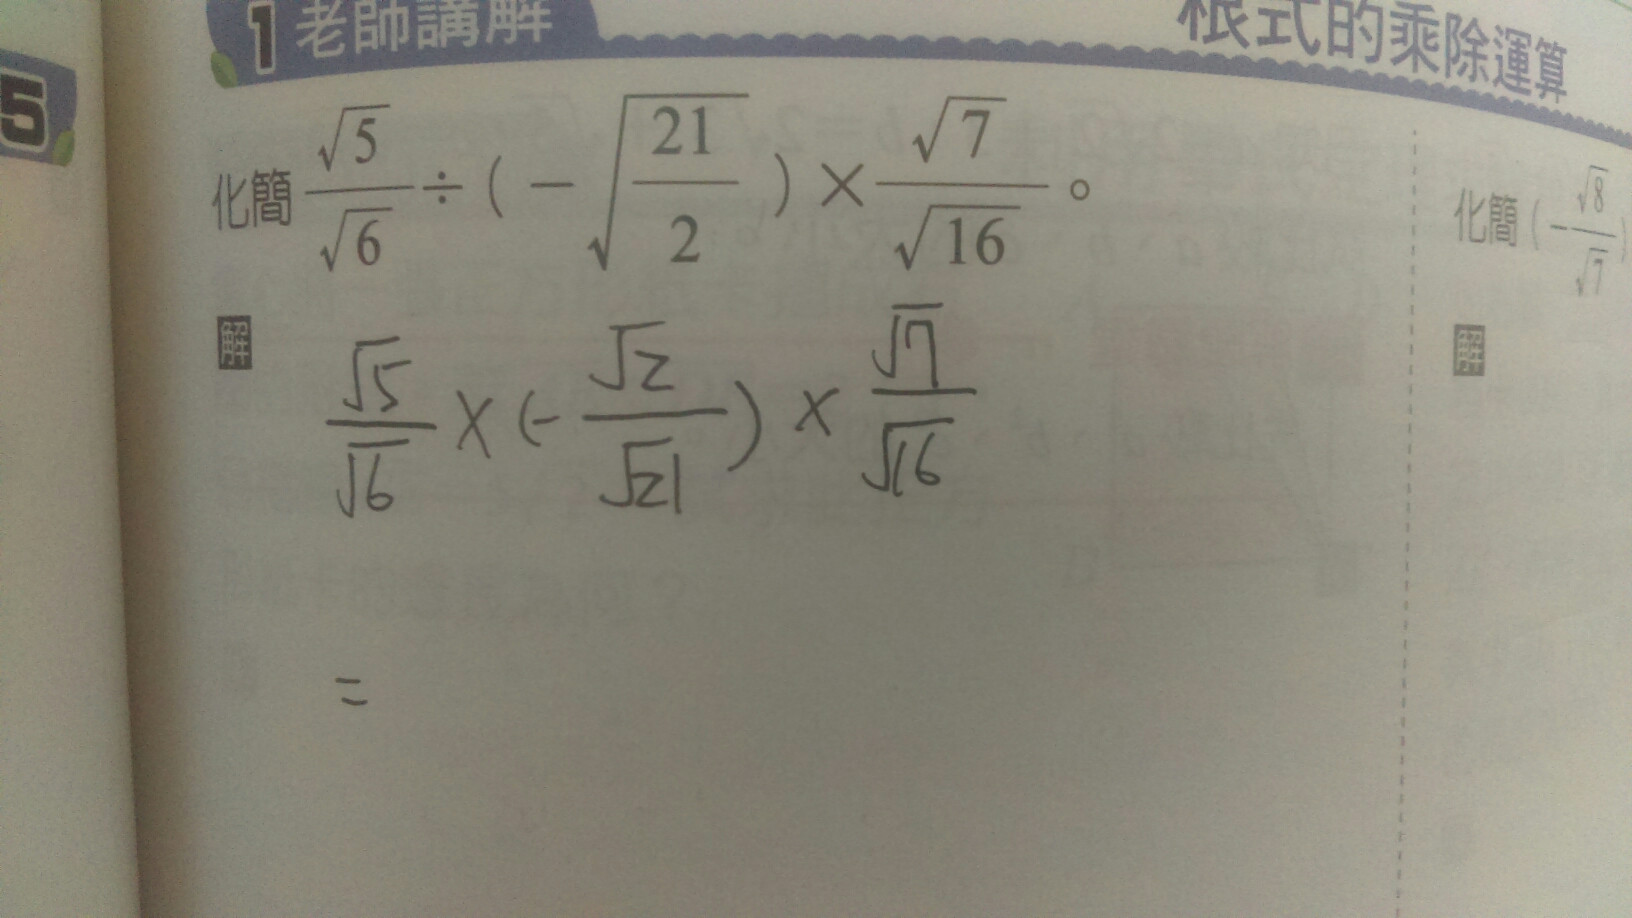 1 老師講解
根式的乘除運算
5
化簡 √5/√6 ÷ ( − √(21/2) ) × √7/√16 。
解
√5/√6 × (- √2/√21) × √7/√16
=
化簡 ( − √8/√7 )
解